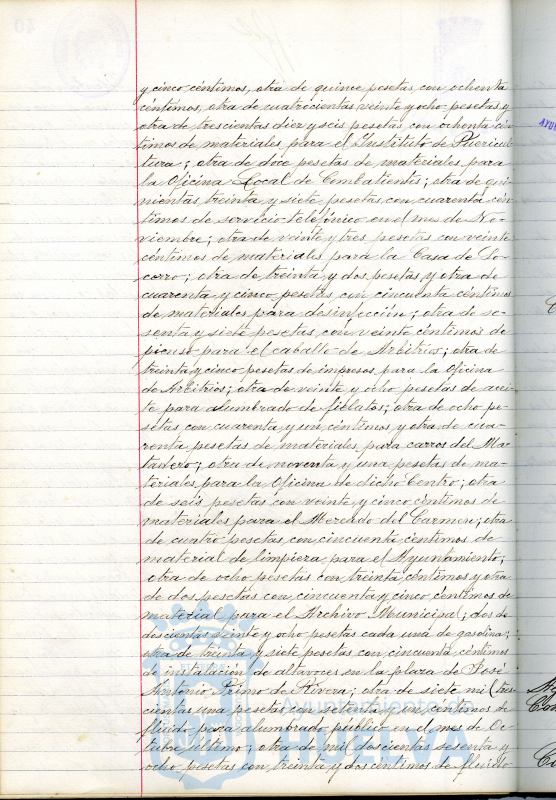 y cinco céntimos, otra de quince pesetas con ochenta
céntimos, otra de cuatrocientas veinte y ocho pesetas y
otra de trescientas diez y seis pesetas con ochenta cén-
timos de materiales para el Instituto de Puericul-
tura; otra de doce pesetas de materiales para
la Oficina Local de Combatientes; otra de qui-
nientas treinta y siete pesetas con cuarenta cén-
timos de servicio telefónico en el mes de No-
viembre; otra de veinte y tres pesetas con veinte
céntimos de materiales para la Casa de So-
corro; otra de treinta y dos pesetas y otra de
cuarenta y cinco pesetas con cincuenta céntimos
de materiales para desinfección; otra de se-
senta y siete pesetas con veinte céntimos de
pienso para el caballo de Arbitrios; otra de
treinta y cinco pesetas de impresos para la Oficina
de Arbitrios; otra de veinte y ocho pesetas de acei-
te para alumbrado de fielatos; otra de ocho pe-
setas con cuarenta y un céntimos, y otra de cua-
renta pesetas de materiales para carros del Ma-
tadero; otra de noventa y una pesetas de ma-
teriales para la Oficina de dicho Centro; otra
de seis pesetas con veinte y cinco céntimos de
materiales para el Mercado del Carmen; otra
de cuatro pesetas con cincuenta céntimos de
material de limpieza para el Ayuntamiento;
otra de ocho pesetas con treinta céntimos y otra
de dos pesetas con cincuenta y cinco céntimos de
material para el Archivo Municipal; dos de
doscientas veinte y ocho pesetas cada una de gasolina;
otra de treinta y siete pesetas con cincuenta céntimos
de instalación de altavoces en la plaza de José
Antonio Primo de Rivera; otra de siete mil tres-
cientas una pesetas con setenta y un céntimos de
flúido para alumbrado público en el mes de Oc-
tubre último; otra de mil doscientas sesenta y
ocho pesetas con treinta y dos céntimos de flúido
Ayuntamiento de
HUELVA